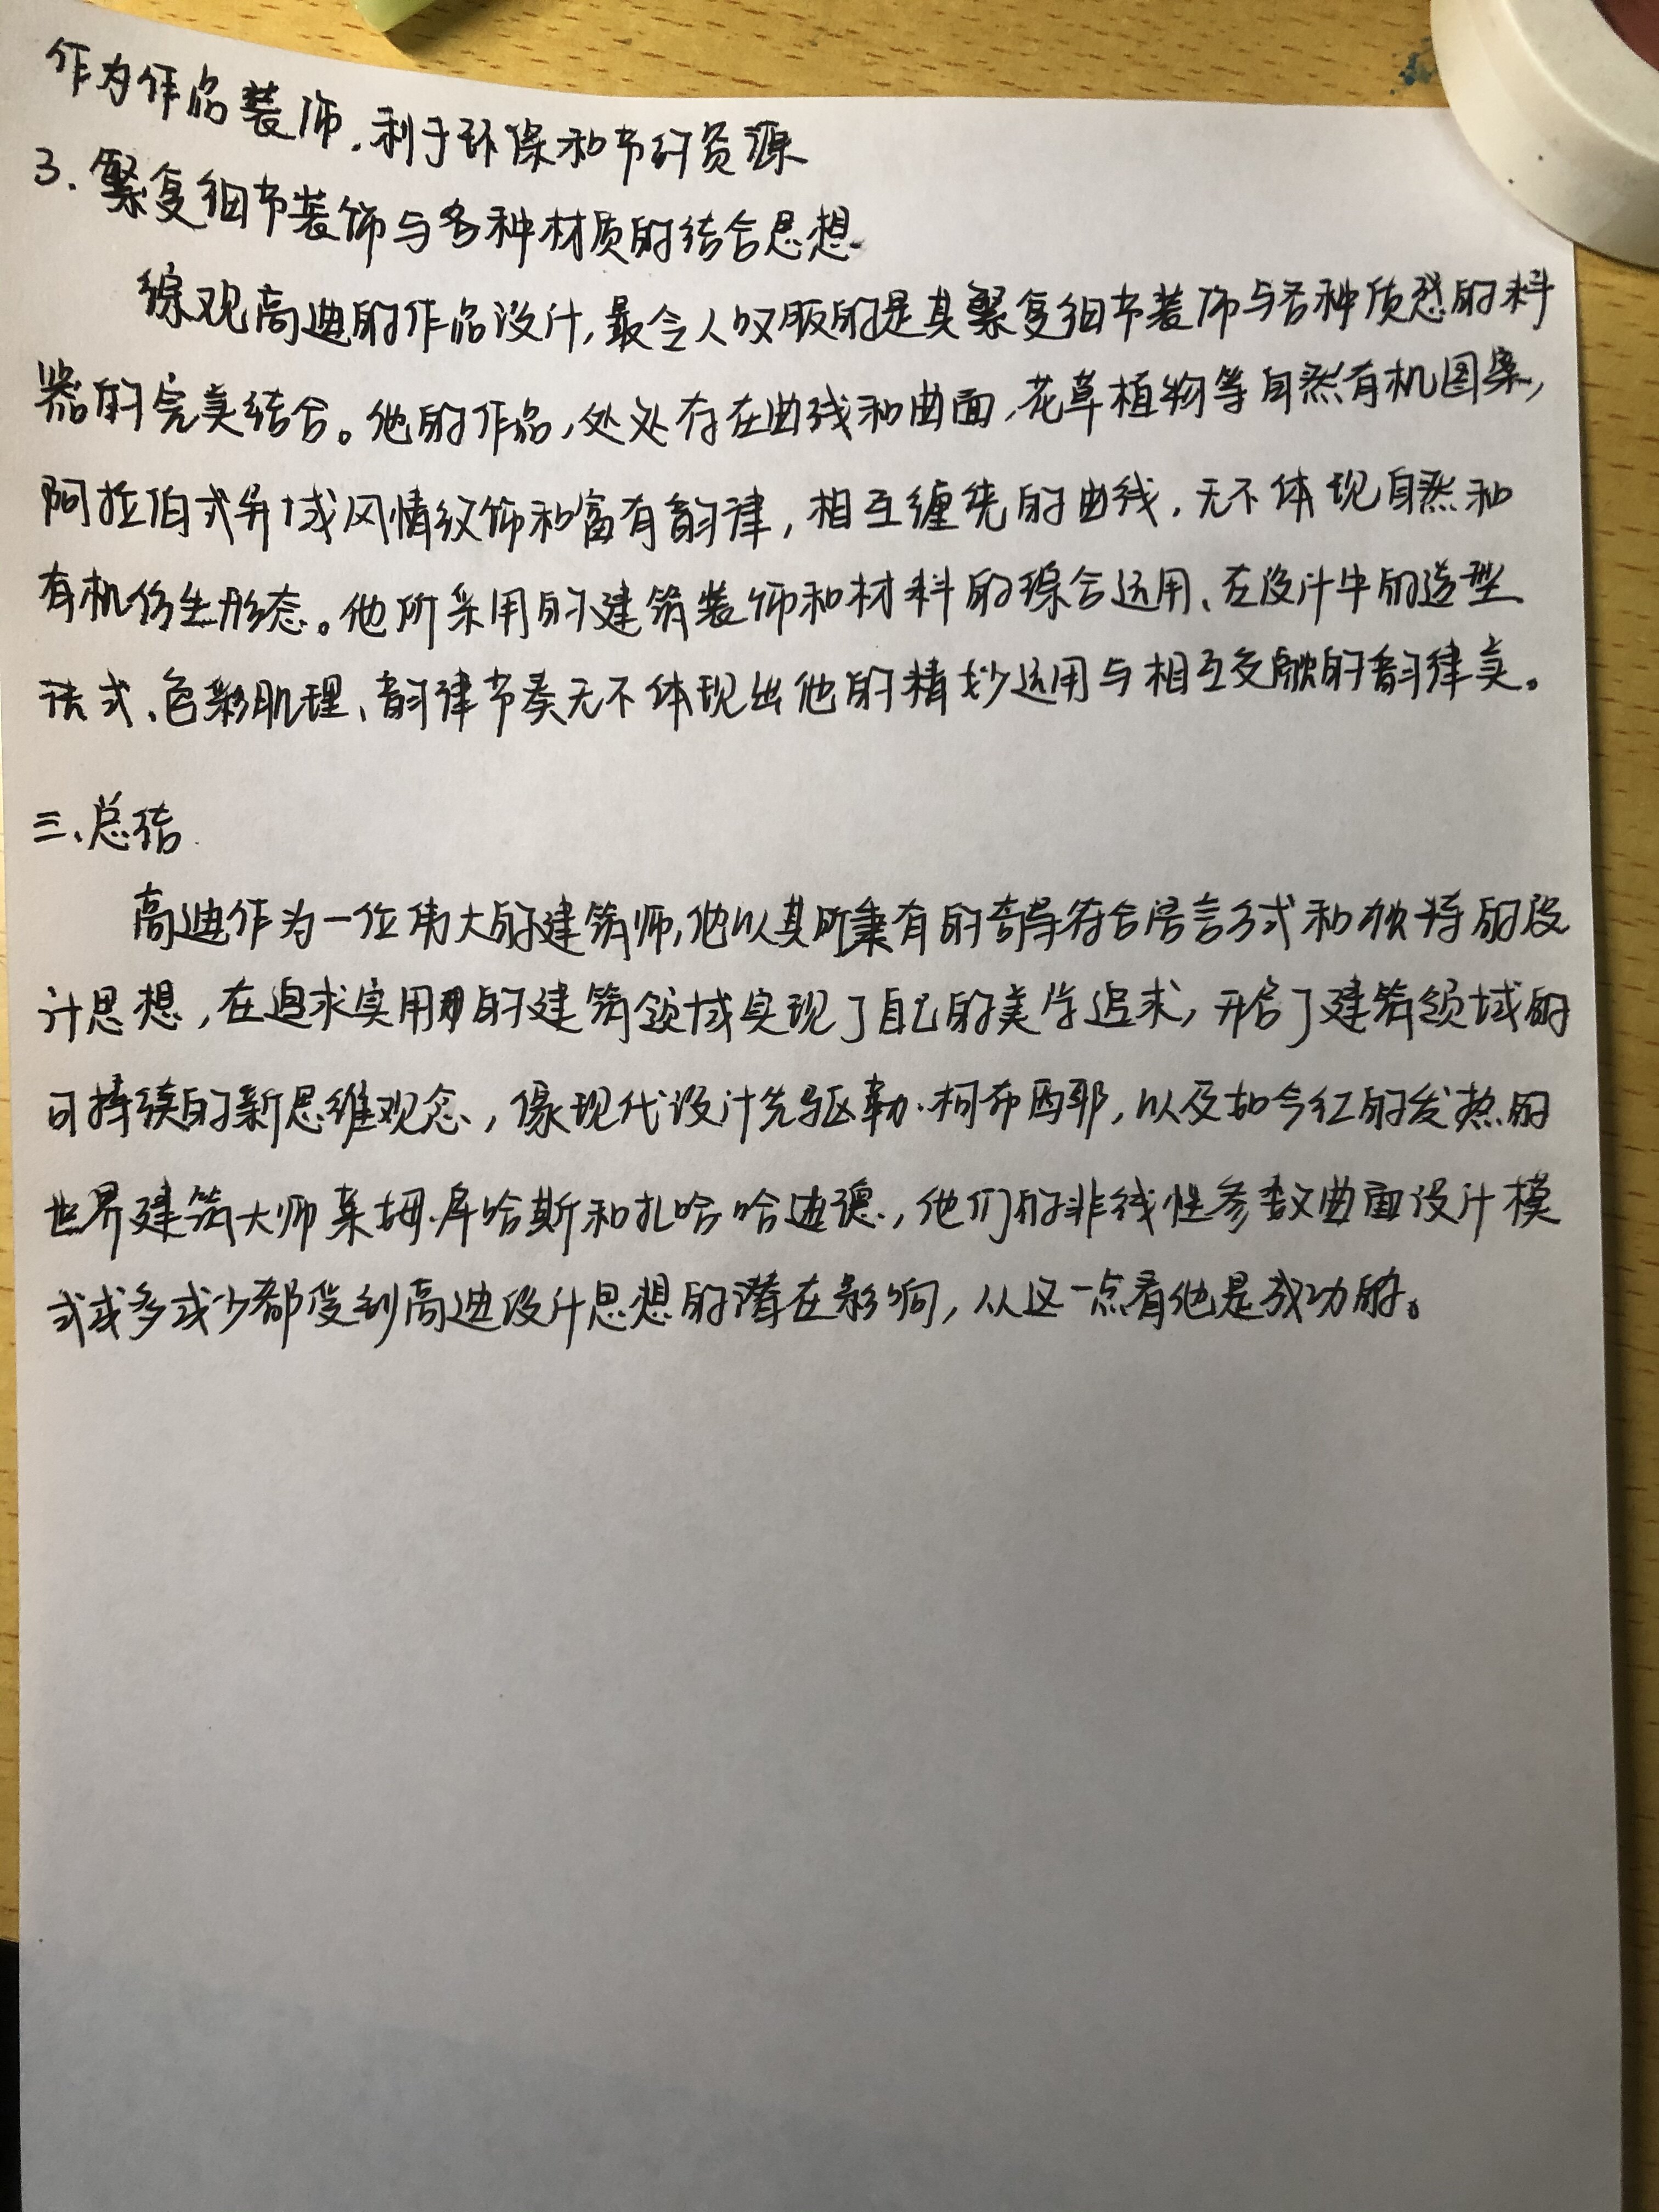 作为作品装饰，利于环保和节约资源
3. 繁复细节装饰与各种材质的结合思想
综观高迪的作品设计，最令人叹服的是其繁复细节装饰与各种质感的料
器的完美结合。他的作品，处处存在曲线和曲面，花草植物等自然有机图案，
阿拉伯式异域风情纹饰和富有韵律，相互缠绕的曲线，无不体现自然和
有机仿生形态。他所采用的建筑装饰和材料的综合运用、在设计中的造型
法式、色彩肌理、韵律节奏无不体现出他的精妙运用与相互交融的韵律美。
三、总结
高迪作为一位伟大的建筑师，他以其所秉有的奇异符合语言方式和独特的设
计思想，在追求实用的建筑领域实现了自己的美学追求，开启了建筑领域的
可持续的新思维观念，像现代设计先驱勒·柯布西耶，以及如今红的发热的
世界建筑大师莱姆·库哈斯和扎哈·哈迪德，他们的非线性参数曲面设计模
式或多或少都受到高迪设计思想的潜在影响，从这一点看他是成功的。